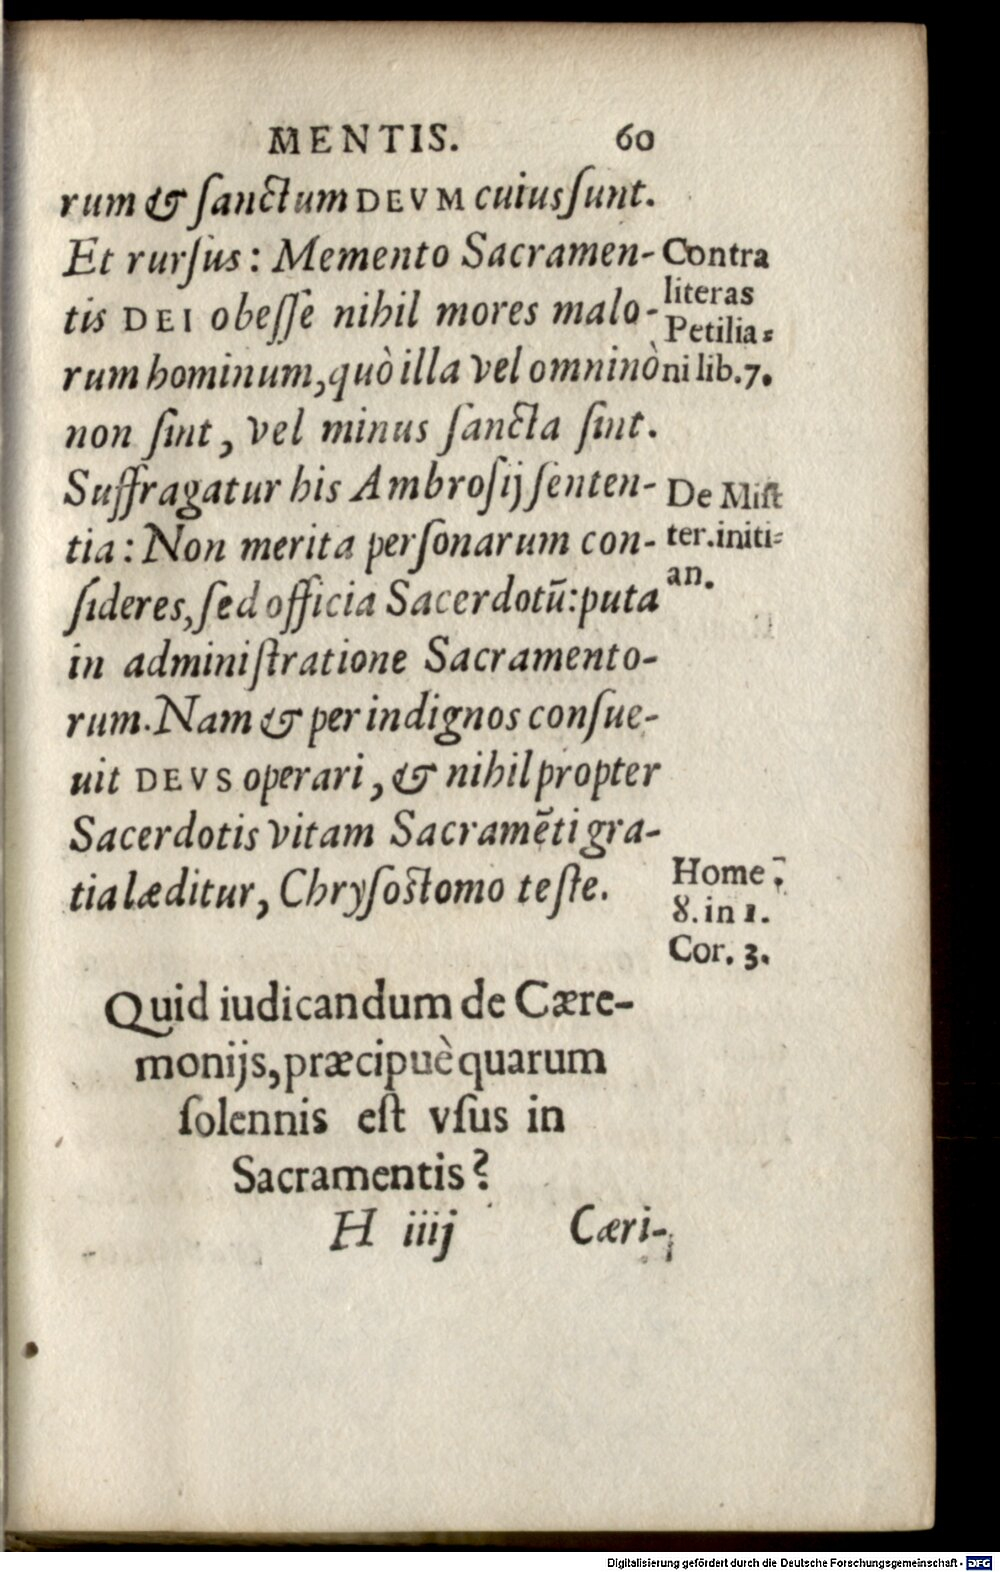 MENTIS. 60
rum & sanctum DEVM cuius sunt.
Et rursus: Memento Sacramen-
tis DEI obesse nihil mores malo-
rum hominum, quò illa vel omninò
non sint, vel minus sancta sint.
Suffragatur his Ambrosij senten-
tia: Non merita personarum con-
sideres, sed officia Sacerdotū: puta
in administratione Sacramento-
rum. Nam & per indignos consue-
uit DEVS operari, & nihil propter
Sacerdotis vitam Sacramēti gra-
tia læditur, Chrysostomo teste.
Contra
literas
Petilia-
ni lib. 7.
De Mist
ter. initi-
an.
Home
8. in 1.
Cor. 3.
Quid iudicandum de Cære-
monijs, præcipuè quarum
solennis est vsus in
Sacramentis?
H iiij Cæri-
Digitalisierung gefördert durch die Deutsche Forschungsgemeinschaft - DFG